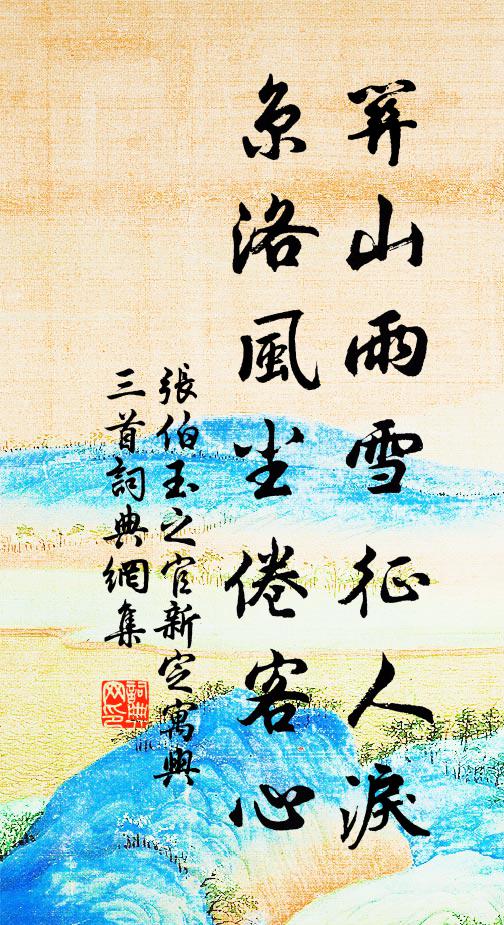 關山雨雪征人淚
京洛風尘倦客心
張伯玉之官新定寓興
三首詞典網集
詞典
网印